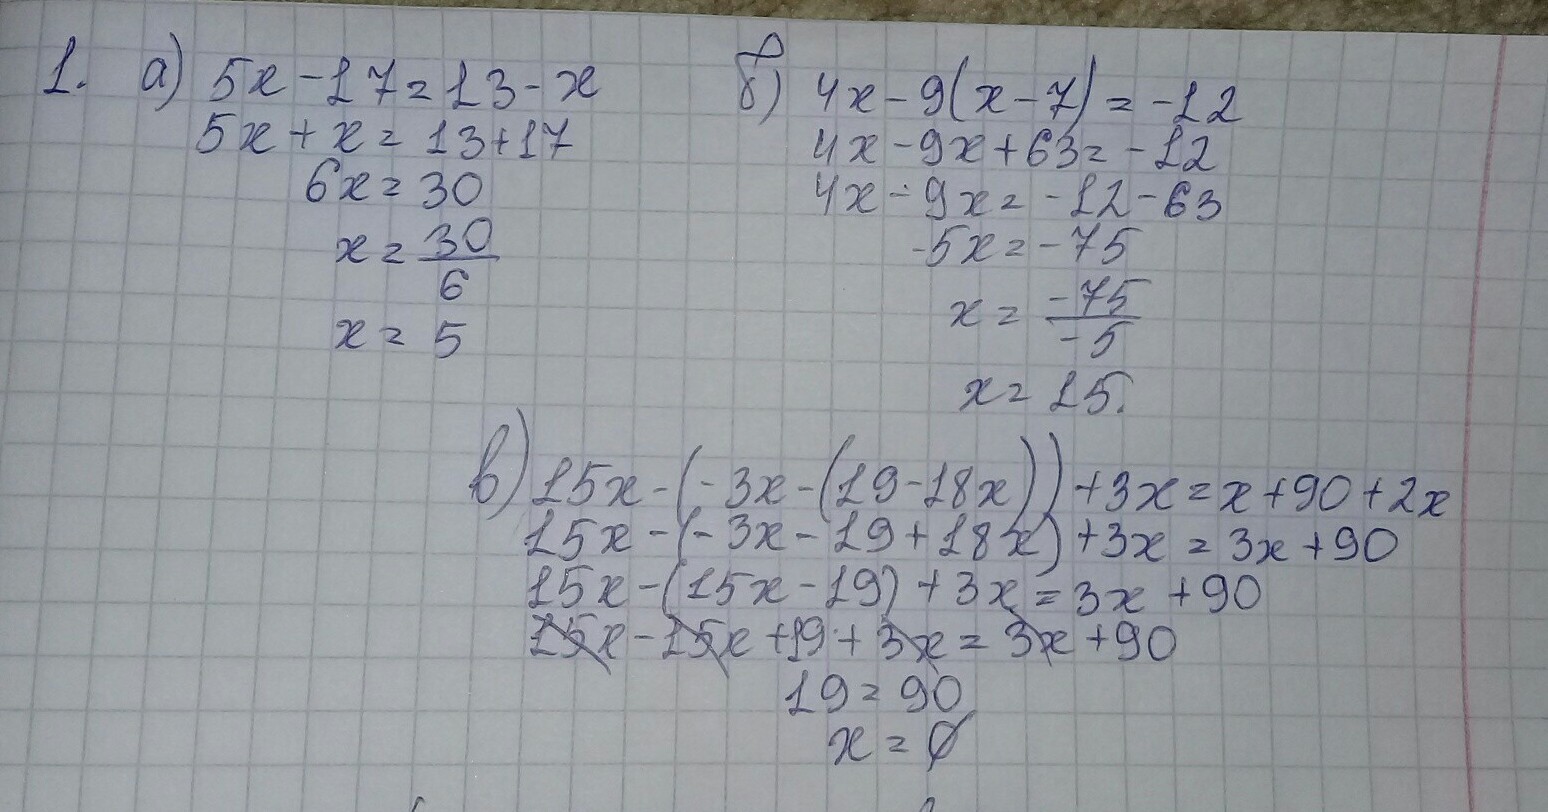 1. а) 5x - 17 = 13 - x
5x + x = 13 + 17
6x = 30
x = 30/6
x = 5
б) 4x - 9(x - 7) = -12
4x - 9x + 63 = -12
4x - 9x = -12 - 63
-5x = -75
x = -75/-5
x = 15.
в) 15x - (-3x - (19 - 18x)) + 3x = x + 90 + 2x
15x - (-3x - 19 + 18x) + 3x = 3x + 90
15x - (15x - 19) + 3x = 3x + 90
15x - 15x + 19 + 3x = 3x + 90
19 = 90
x = ∅